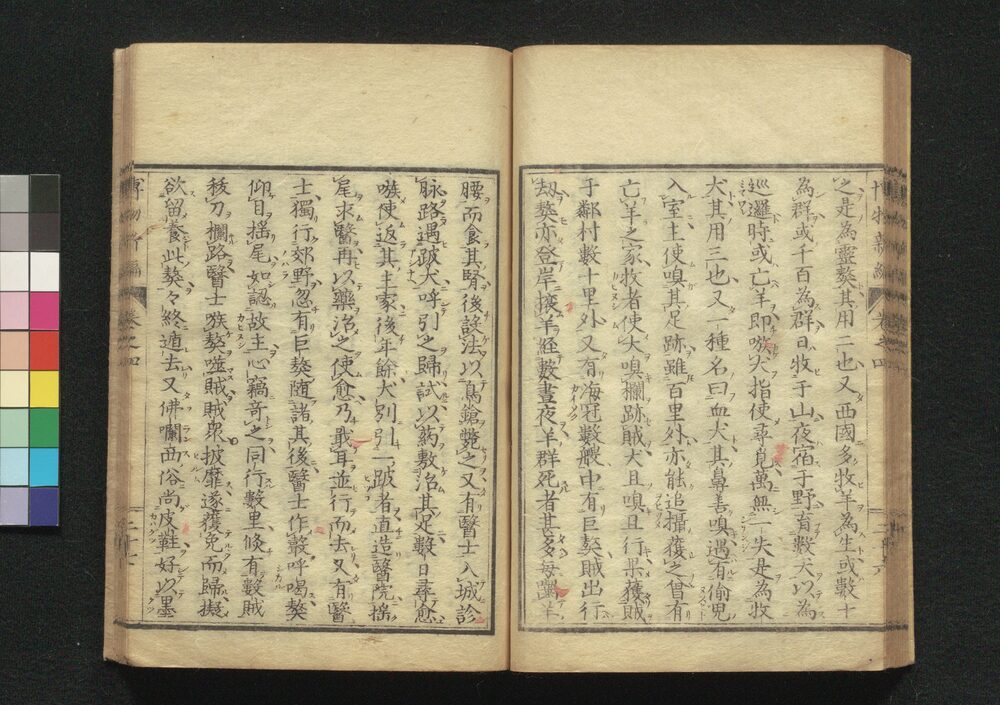 之是為靈獒其用二也又西國多牧羊為生或數十
為群或千百為群日牧于山夜宿于野畜數犬以為
巡邏時或亡羊即嗾犬指使尋覓萬無一失是為牧
犬其用三也又一種名曰血犬其鼻善嗅遇有偷兒
入室主使嗅其足跡雖百里外亦能追攝獲之曾有
亡羊之家牧者使犬嗅欄跡賊犬且嗅且行果獲賊
于鄰村數十里外又有海冦數艘中有巨獒賊出行
劫獒亦登岸掖羊経數晝夜羊群死者甚多每囓羊
腰而食其腎後設法以鳥鎗斃之又有醫士入城診
脉路遇跛犬呼引之歸試以葯敷治其足數日尋愈
嗾使返其主家後年餘犬別引一跛者直造醫院揺
尾求醫再以藥治之使愈乃戢耳並行而去又有醫
士獨行郊野忽有巨獒随諸其後醫士作聲呼喝獒
仰目揺尾如認故主心竊奇之同行數里倐有數賊
秡刀欄路醫士嗾獒噬賊賊衆披靡遂獲免而歸擬
欲留養此獒々終遁去又佛囒西俗尚皮鞋好以墨
博物新編
卷之四